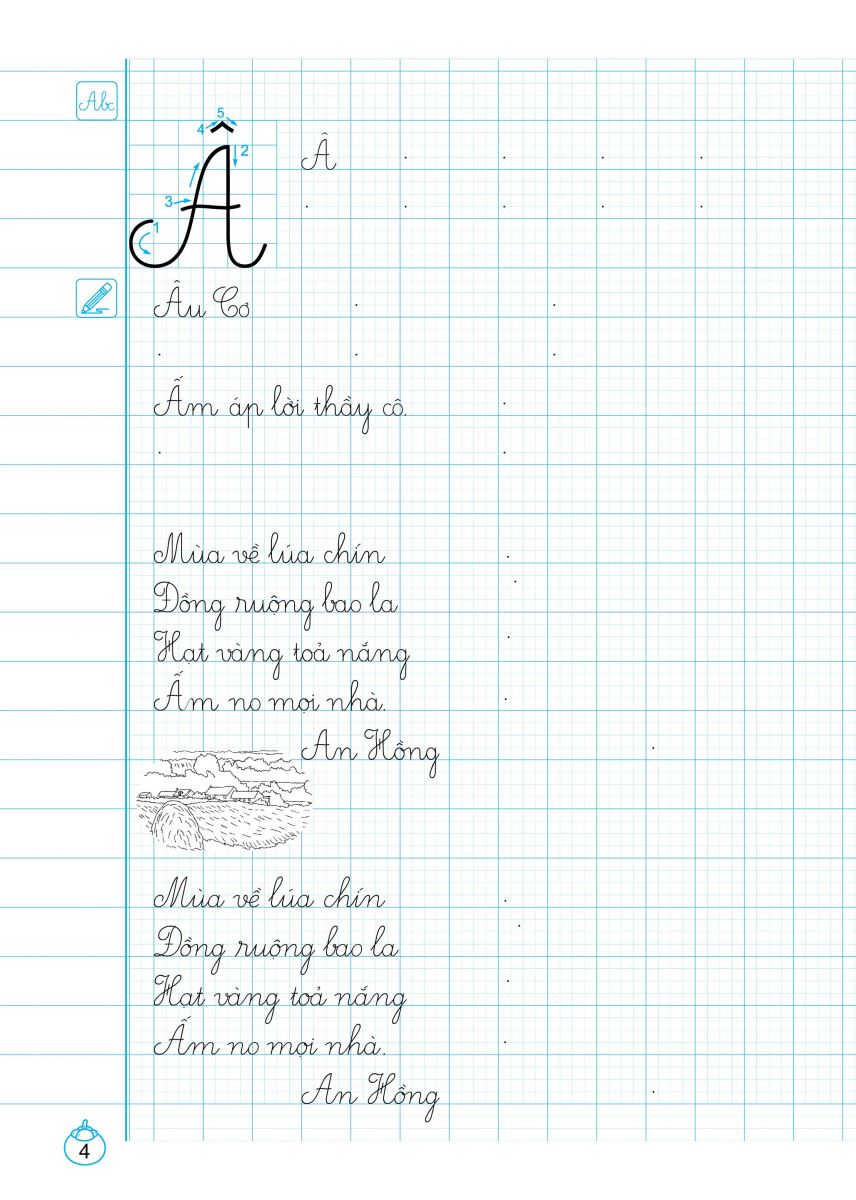 Abc
4 5
2
3
1
Â Â
Âu Cơ
Ấm áp lời thầy cô.
Mùa về lúa chín
Đồng ruộng bao la
Hạt vàng toả nắng
Ấm no mọi nhà.
An Hồng
Mùa về lúa chín
Đồng ruộng bao la
Hạt vàng toả nắng
Ấm no mọi nhà.
An Hồng
4